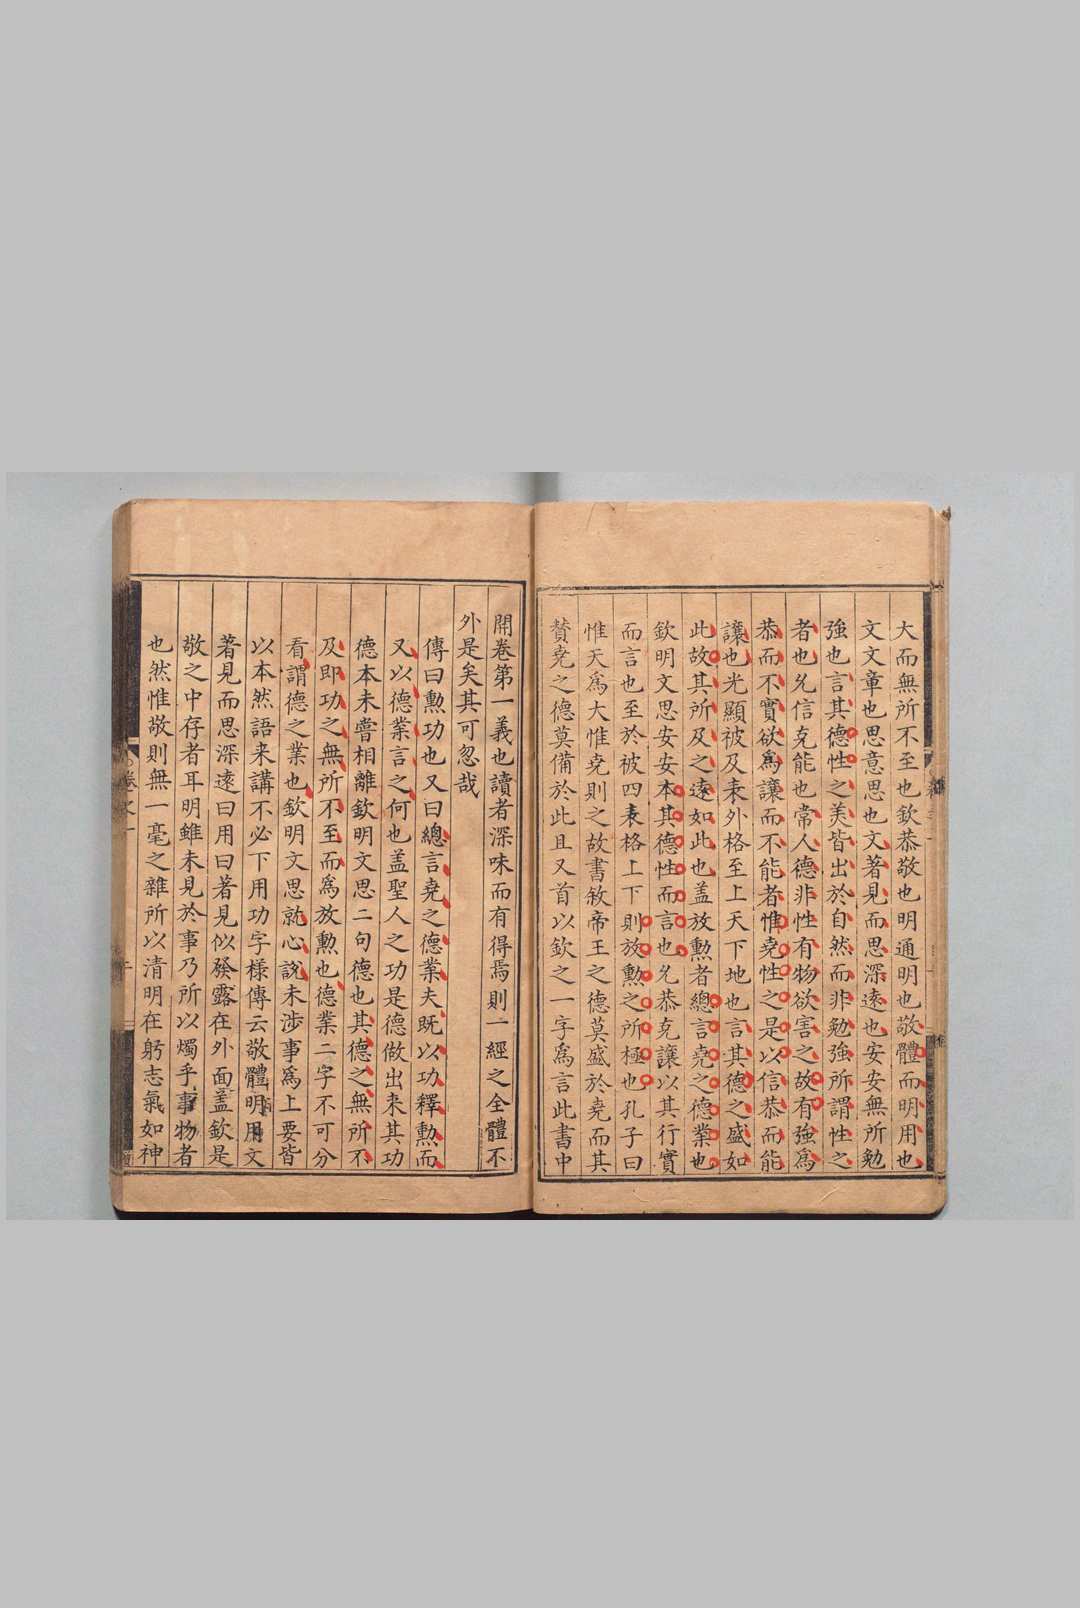 大而無所不至也欽恭敬也明通明也敬體而明用也
文文章也思意思也文著見而思深遠也安安無所勉
強也言其德性之美皆出於自然而非勉強所謂性之
者也允信克能也常人德非性有物欲害之故有強爲
恭而不實欲爲讓而不能者惟堯性之是以信恭而能
讓也光顯被及表外格至上天下地也言其德之盛如
此故其所及之遠如此也盖放勲者總言堯之德業也
欽明文思安安本其德性而言也允恭克讓以其行實
而言也至於被四表格上下則放勲之所極也孔子曰
惟天爲大惟堯則之故書敘帝王之德莫盛於堯而其
賛堯之德莫備於此且又首以欽之一字爲言此書中
開卷第一義也讀者深味而有得焉則一經之全體不
外是矣其可忽哉
傳曰勲功也又曰總言堯之德業夫既以功釋勲而
又以德業言之何也盖聖人之功是德做出来其功
德本未嘗相離欽明文思二句德也其德之無所不
及即功之無所不至而爲放勲也德業二字不可分
看謂德之業也欽明文思就心說未涉事爲上要皆
以本然語来講不必下用功字樣傳云敬體明用文
著見而思深遠曰用曰著見似發露在外面盖欽是
敬之中存者耳明雖未見於事乃所以燭乎事物者
也然惟敬則無一毫之雜所以清明在躬志氣如神
卷之一